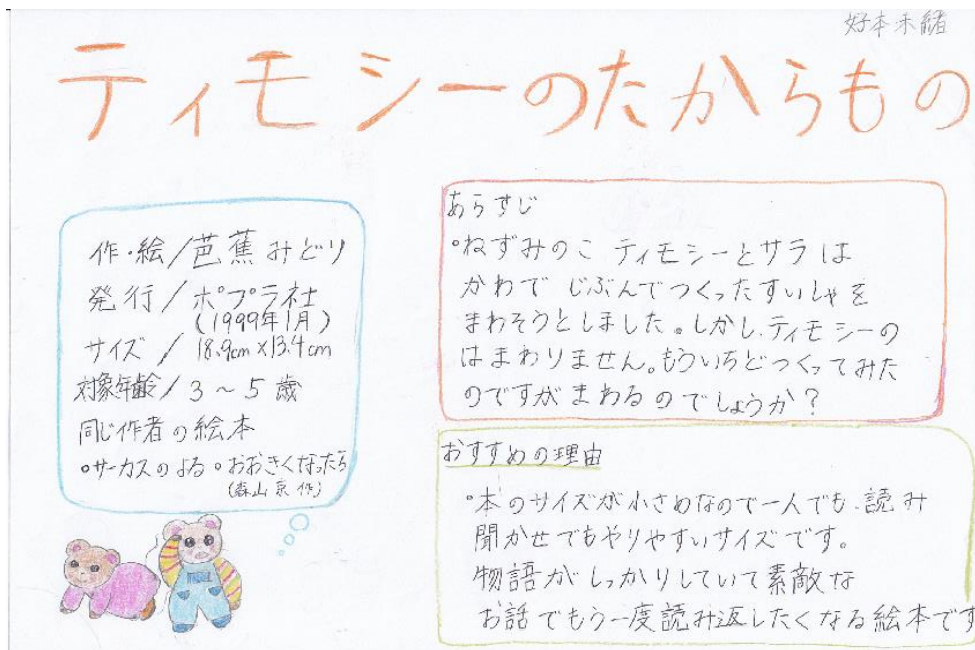 好本未緒
ティモシーのたからもの
作・絵/芭蕉みどり
発行/ポプラ社
(1999年1月)
サイズ/18.9cm×13.4cm
対象年齢/3～5歳
同じ作者の絵本
・サーカスのよる・おおきくなったら
(森山京作)
あらすじ
・ねずみのこ ティモシーとサラは
かわで じぶんでつくったすいしゃを
まわそうとしました。しかし、ティモシーの
はまわりません。もういちどつくってみた
のですがまわるのでしょうか?
おすすめの理由
・本のサイズが小さめなので一人でも、読み
聞かせでもやりやすいサイズです。
物語がしっかりしていて素敵な
お話でもう一度読み返したくなる絵本です